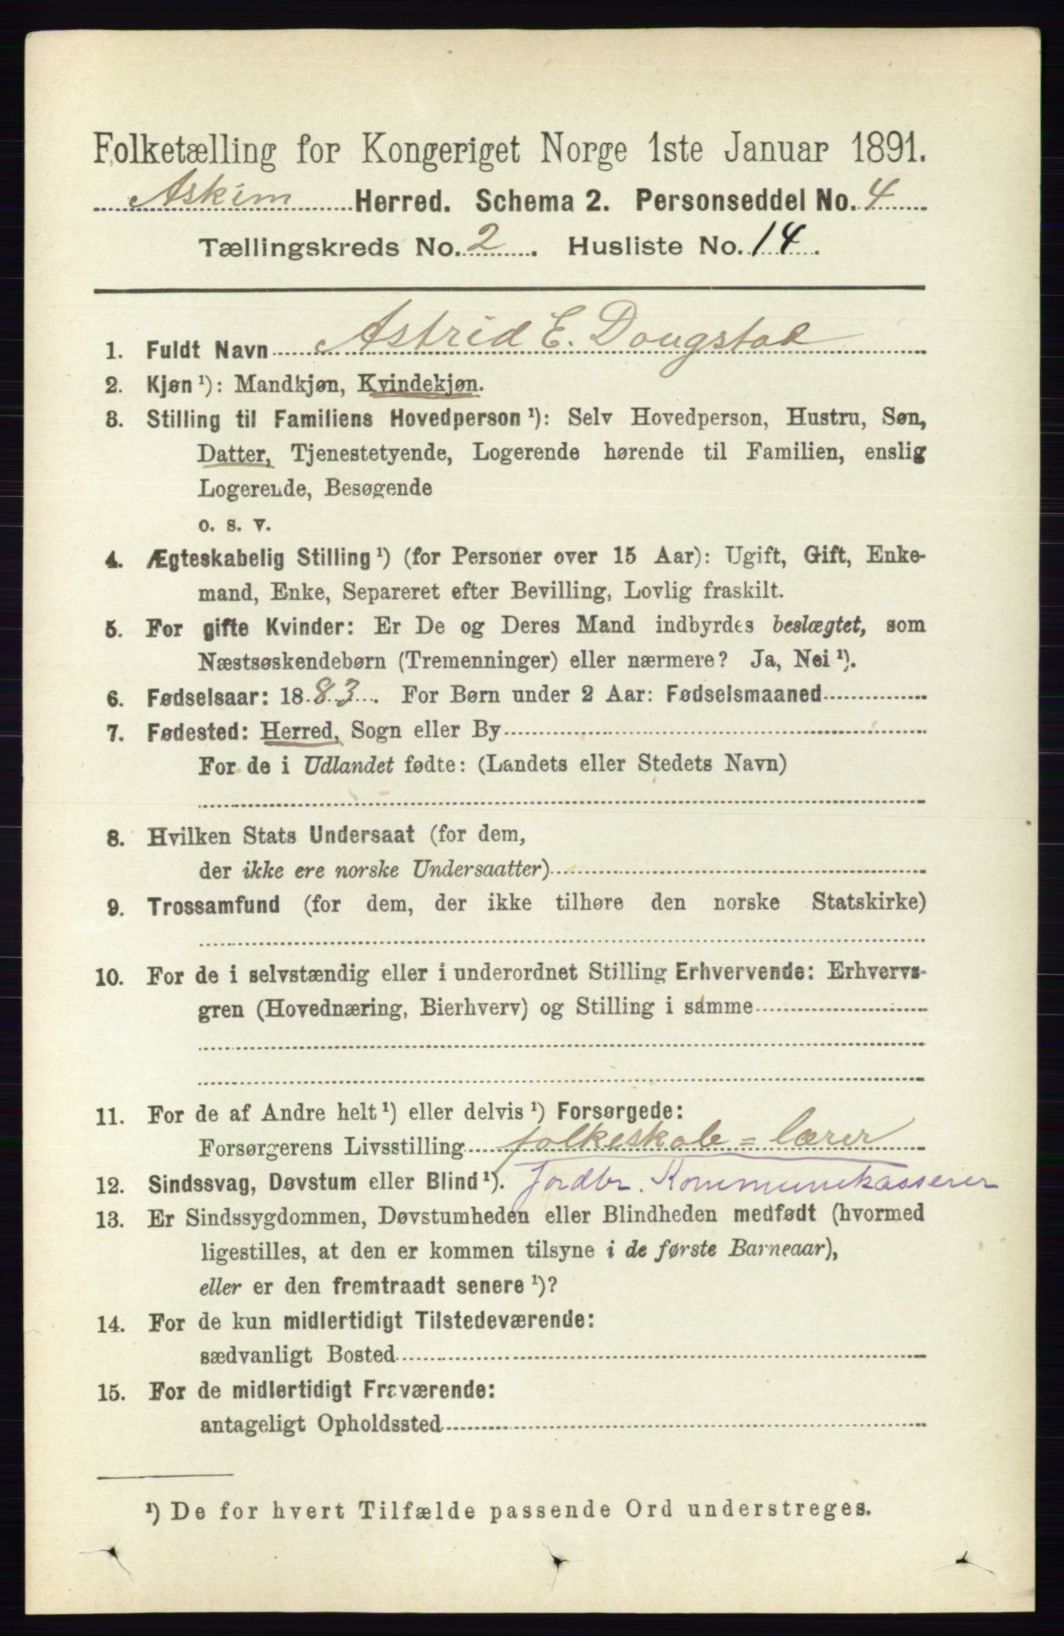 Folketælling for Kongeriget Norge 1ste Januar 1891.
Askim Herred. Schema 2. Personseddel No. 4
Tællingskreds No. 2. Husliste No. 14.
1. Fuldt Navn Astrid E. Dougstad
2. Kjøn ¹): Mandkjøn, Kvindekjøn.
3. Stilling til Familiens Hovedperson ¹): Selv Hovedperson, Hustru, Søn,
Datter, Tjenestetyende, Logerende hørende til Familien, enslig
Logerende, Besøgende
o. s. v.
4. Ægteskabelig Stilling ¹) (for Personer over 15 Aar): Ugift, Gift, Enke-
mand, Enke, Separeret efter Bevilling, Lovlig fraskilt.
5. For gifte Kvinder: Er De og Deres Mand indbyrdes beslægtet, som
Næstsøskendebørn (Tremenninger) eller nærmere? Ja, Nei ¹).
6. Fødselsaar: 1883. For Børn under 2 Aar: Fødselsmaaned
7. Fødested: Herred, Sogn eller By
For de i Udlandet fødte: (Landets eller Stedets Navn)
8. Hvilken Stats Undersaat (for dem,
der ikke ere norske Undersaatter)
9. Trossamfund (for dem, der ikke tilhøre den norske Statskirke)
10. For de i selvstændig eller i underordnet Stilling Erhvervende: Erhvervs-
gren (Hovednæring, Bierhverv) og Stilling i samme
11. For de af Andre helt ¹) eller delvis ¹) Forsørgede:
Forsørgerens Livsstilling folkeskole=lærer
12. Sindssvag, Døvstum eller Blind ¹). Jordbr. Kommunekasserer
13. Er Sindssygdommen, Døvstumheden eller Blindheden medfødt (hvormed
ligestilles, at den er kommen tilsyne i de første Barneaar),
eller er den fremtraadt senere ¹)?
14. For de kun midlertidigt Tilstedeværende:
sædvanligt Bosted
15. For de midlertidigt Fraværende:
antageligt Opholdssted
¹) De for hvert Tilfælde passende Ord understreges.